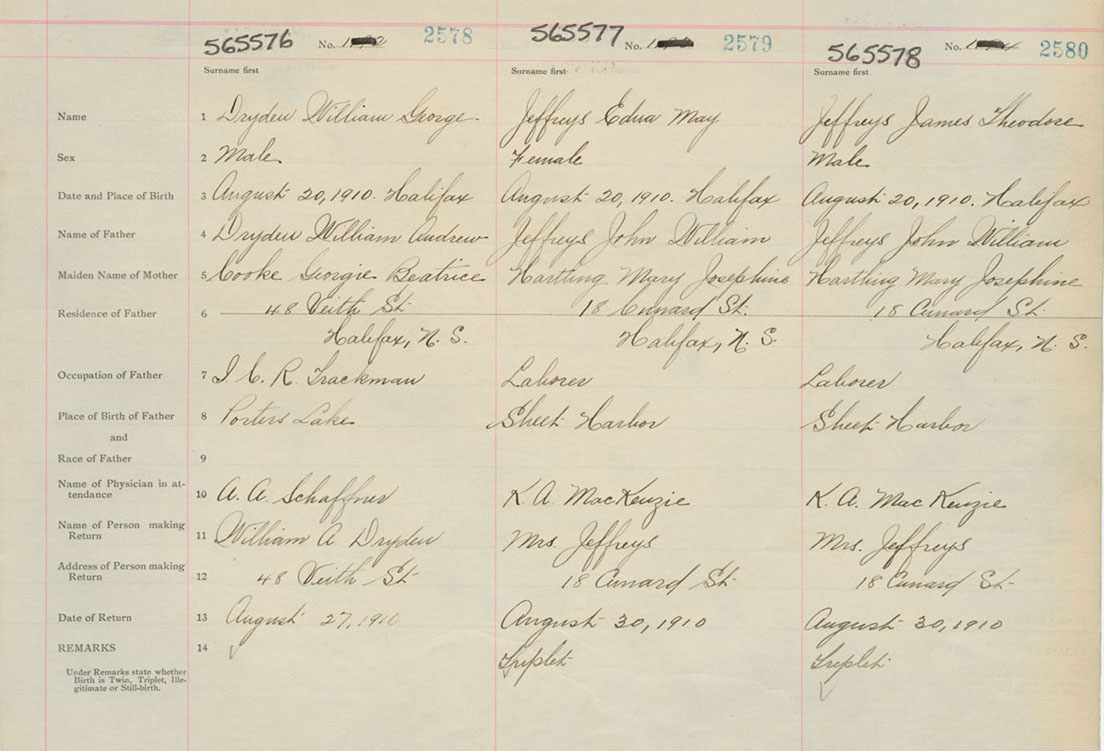 565576 No. 2578 565577 No. 2579 565578 No. 2580
Surname first Surname first Surname first
Name 1 Dryden William George Jeffreys Edna May Jeffreys James Theodore
Sex 2 Male Female Male
Date and Place of Birth 3 August 20, 1910. Halifax August 20, 1910. Halifax August 20, 1910. Halifax
Name of Father 4 Dryden William Andrew Jeffreys John William Jeffreys John William
Maiden Name of Mother 5 Cooke Georgie Beatrice Hartling Mary Josephine Hartling Mary Josephine
Residence of Father 6 48 Veith St. 18 Cunard St. 18 Cunard St.
Halifax, N. S. Halifax, N. S. Halifax, N. S.
Occupation of Father 7 I. C. R. Trackman Laborer Laborer
Place of Birth of Father 8 Porters Lake Sheet Harbor Sheet Harbor
and
Race of Father 9
Name of Physician in at-
tendance 10 A. A. Schaffner K. A. MacKenzie K. A. MacKenzie
Name of Person making
Return 11 William A. Dryden Mrs. Jeffreys Mrs. Jeffreys
Address of Person making
Return 12 48 Veith St. 18 Cunard St. 18 Cunard St.
Date of Return 13 August 27, 1910 August 30, 1910 August 30, 1910
REMARKS 14 Triplet Triplet
Under Remarks state whether
Birth is Twin, Triplet, Ille-
gitimate or Still-birth.